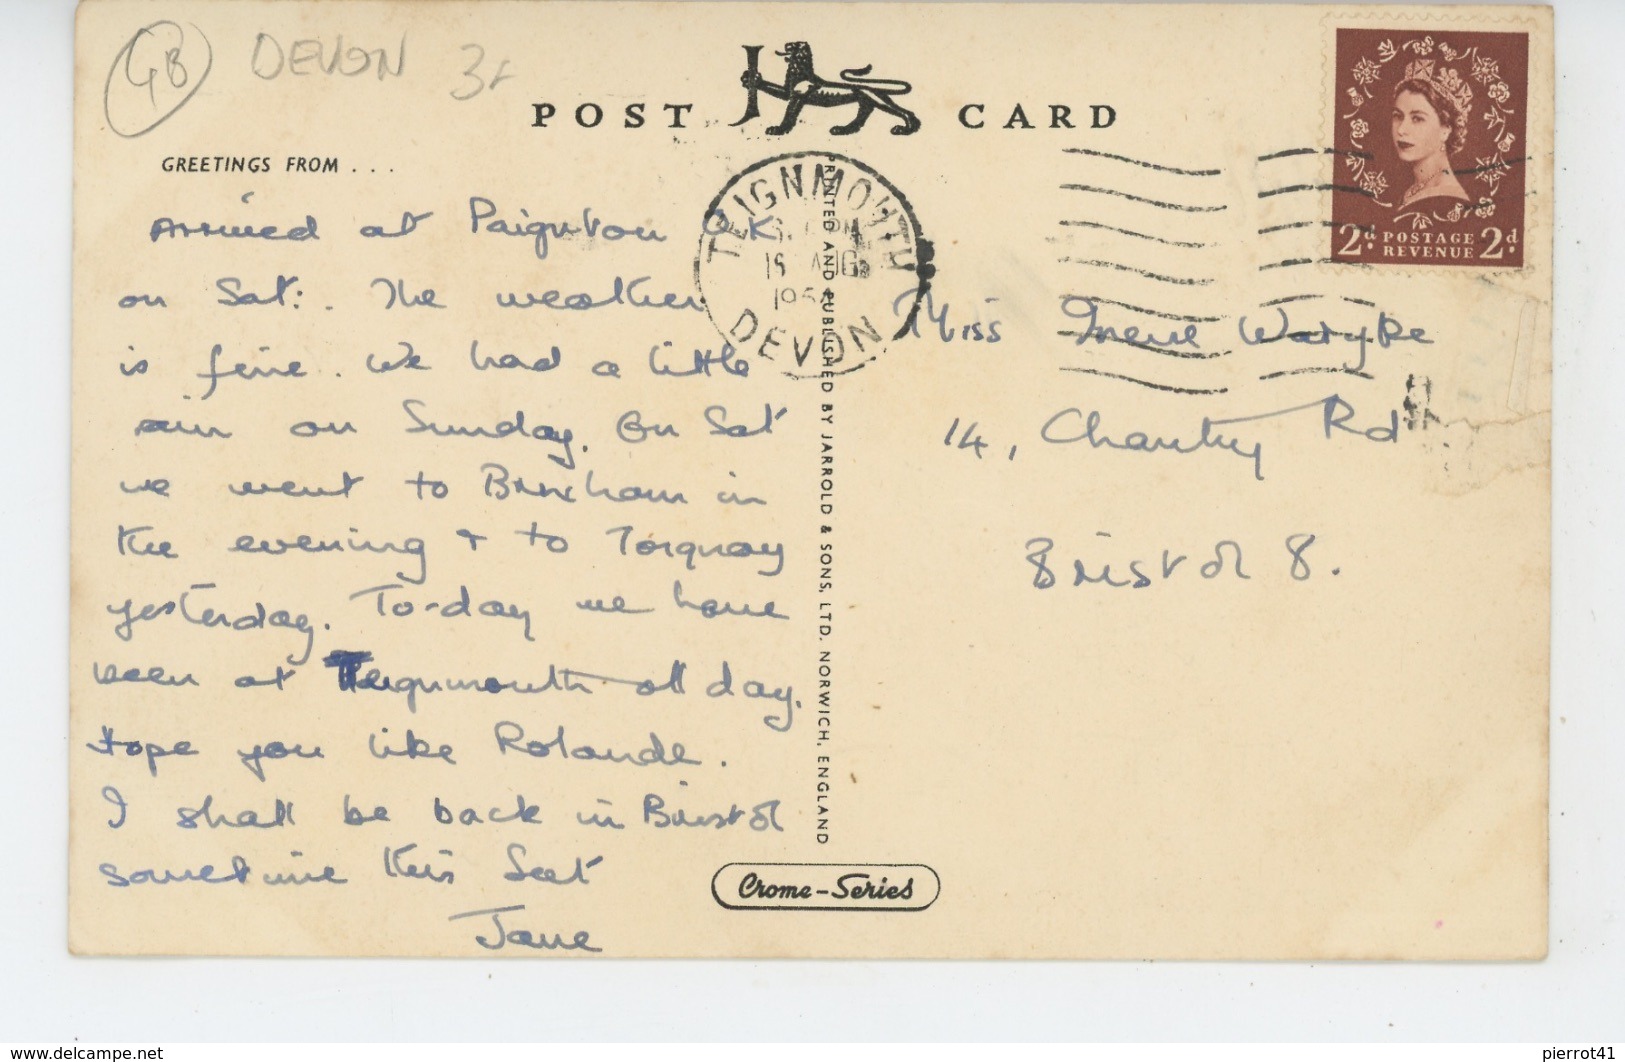 GB DEVON
POST CARD
GREETINGS FROM . . .
Arrived at Paignton O.K
on Sat:. The weather
is fine. We had a little
rain on Sunday. On Sat
we went to Brixham in
the evening + to Torquay
yesterday. To-day we have
been at Teignmouth all day.
Hope you like Rolande.
I shall be back in Bristol
sometime this Sat
Jane
TEIGNMOUTH
AUG
DEVON
PRINTED AND PUBLISHED BY JARROLD & SONS, LTD. NORWICH, ENGLAND
Crome-Series
2d. POSTAGE REVENUE 2d.
Miss Irene
14, Chantry Rd
Bristol 8.
www.delcampe.net
pierrot41